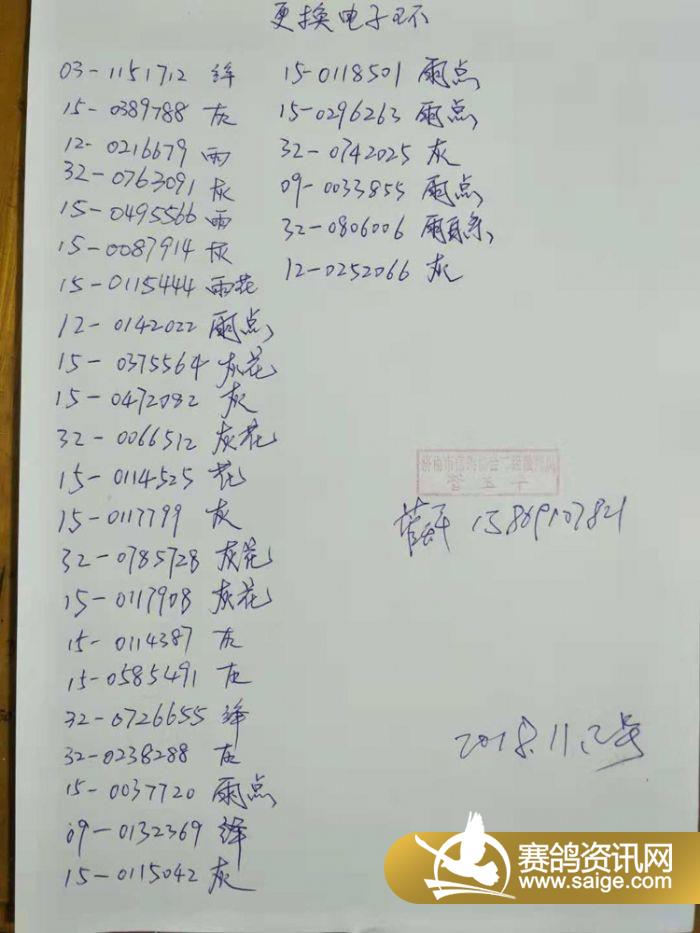 更换电子环
03-1151712 绛
15-0389788 灰
12-0216679 雨
32-0763091 灰
15-0495566 雨
15-0087914 灰
15-0115444 雨花
12-0142022 雨点
15-0375564 灰花
15-0472082 灰
32-0066512 灰花
15-0114525 花
15-0117799 灰
32-0785728 灰花
15-0117908 灰花
15-0114387 灰
15-0585491 灰
32-0726655 绛
32-0238288 灰
15-0037720 雨点
09-0132369 绛
15-0115042 灰
15-0118501 雨点
15-0296263 雨点
32-0742025 灰
09-0033855 雨点
32-0806006 雨
12-0252066 灰
济南市信鸽协会
15869107821
2018.11.2号
赛鸽资讯网
www.saige.com